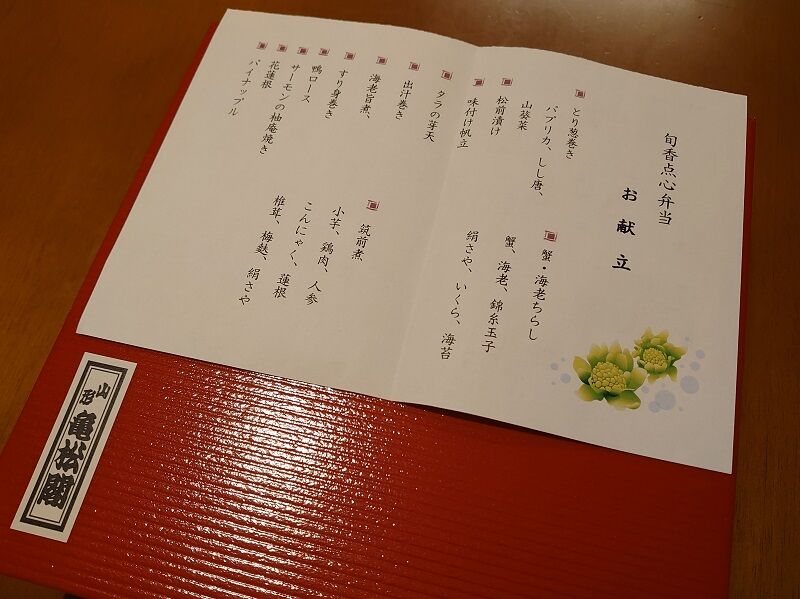 旬香点心弁当
お献立
とり葱巻き
パプリカ、しし唐、
山葵菜
松前漬け
味付け帆立
タラの芽天
出汁巻き
海老旨煮、
すり身巻き
鴨ロース
サーモンの柚庵焼き
花蓮根
パイナップル
蟹・海老ちらし
蟹、海老、錦糸玉子
絹さや、いくら、海苔
筑前煮
小芋、鶏肉、人参
こんにゃく、蓮根
椎茸、梅麩、絹さや
山形
亀松閣